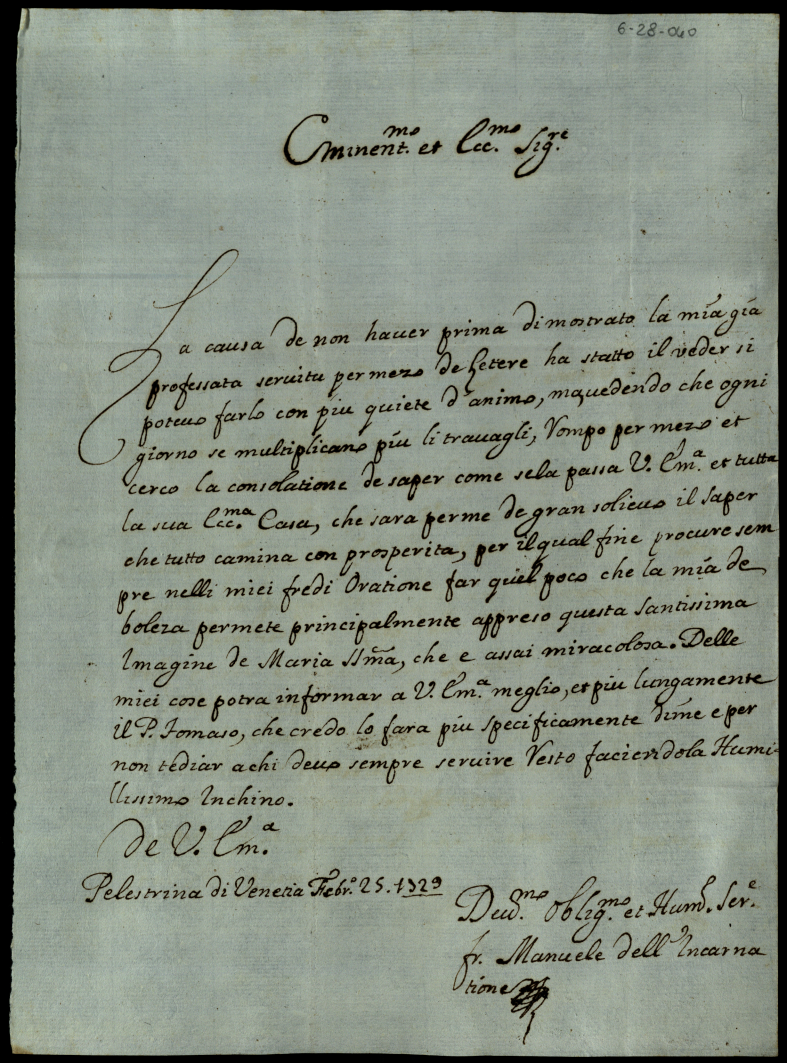 6-28-040
Eminent.mo et Ecc.mo Sig.re
La causa de non hauer prima dimostrato la mia gia
professata seruitu per mezo de letere ha statto il veder si
poteuo farlo con piu quiete d'animo, ma, uedendo che ogni
giorno se multiplicano piu li trauagli, Rompo per mezo et
cerco la consolatione de saper come se la passa V. Em.a et tutta
la sua Ecc.ma Casa, che sara per me de gran solieuo il saper
che tutto camina con prosperita, per il qual fine procure sem
pre nelli miei fredi Oratione far quel poco che la mia de
boleza permete principalmente appreso questa Santissima
Imagine de Maria SSma, che e assai miracolosa. Delle
miei cose potra informar a V. Em.a meglio, et piu lungamente
il P. Tomaso, che credo lo fara piu specificamente di me e per
non tediar a chi deuo sempre seruire Resto faciendola Humi-
llissimo Inchino.
De V. Em.a
Pelestrina di Venetia Febr.o 25. 1729
Deud.mo Oblig.mo et Humil. Ser.e
fr. Manuele dell'Incarna
tione